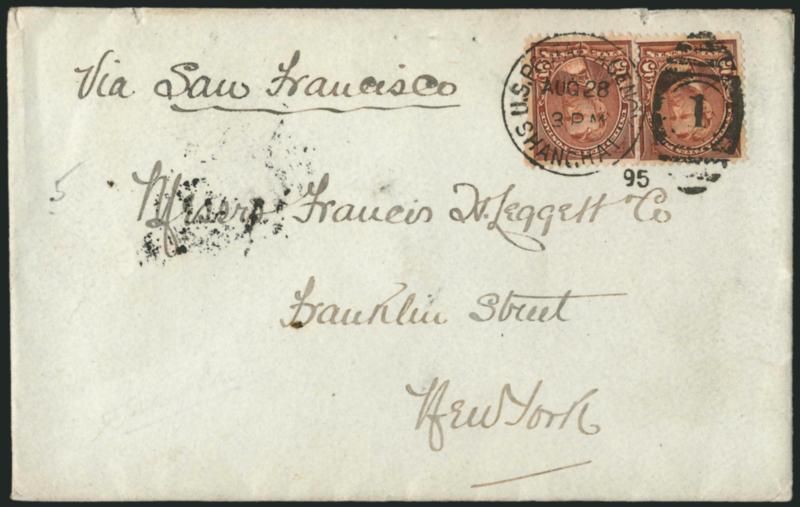 Via San Francisco
U.S. POSTAL AGENCY
AUG 28
3 PM
SHANGHAI
95
1
5
Messrs Francis H. Leggett Co
Franklin Street
New York